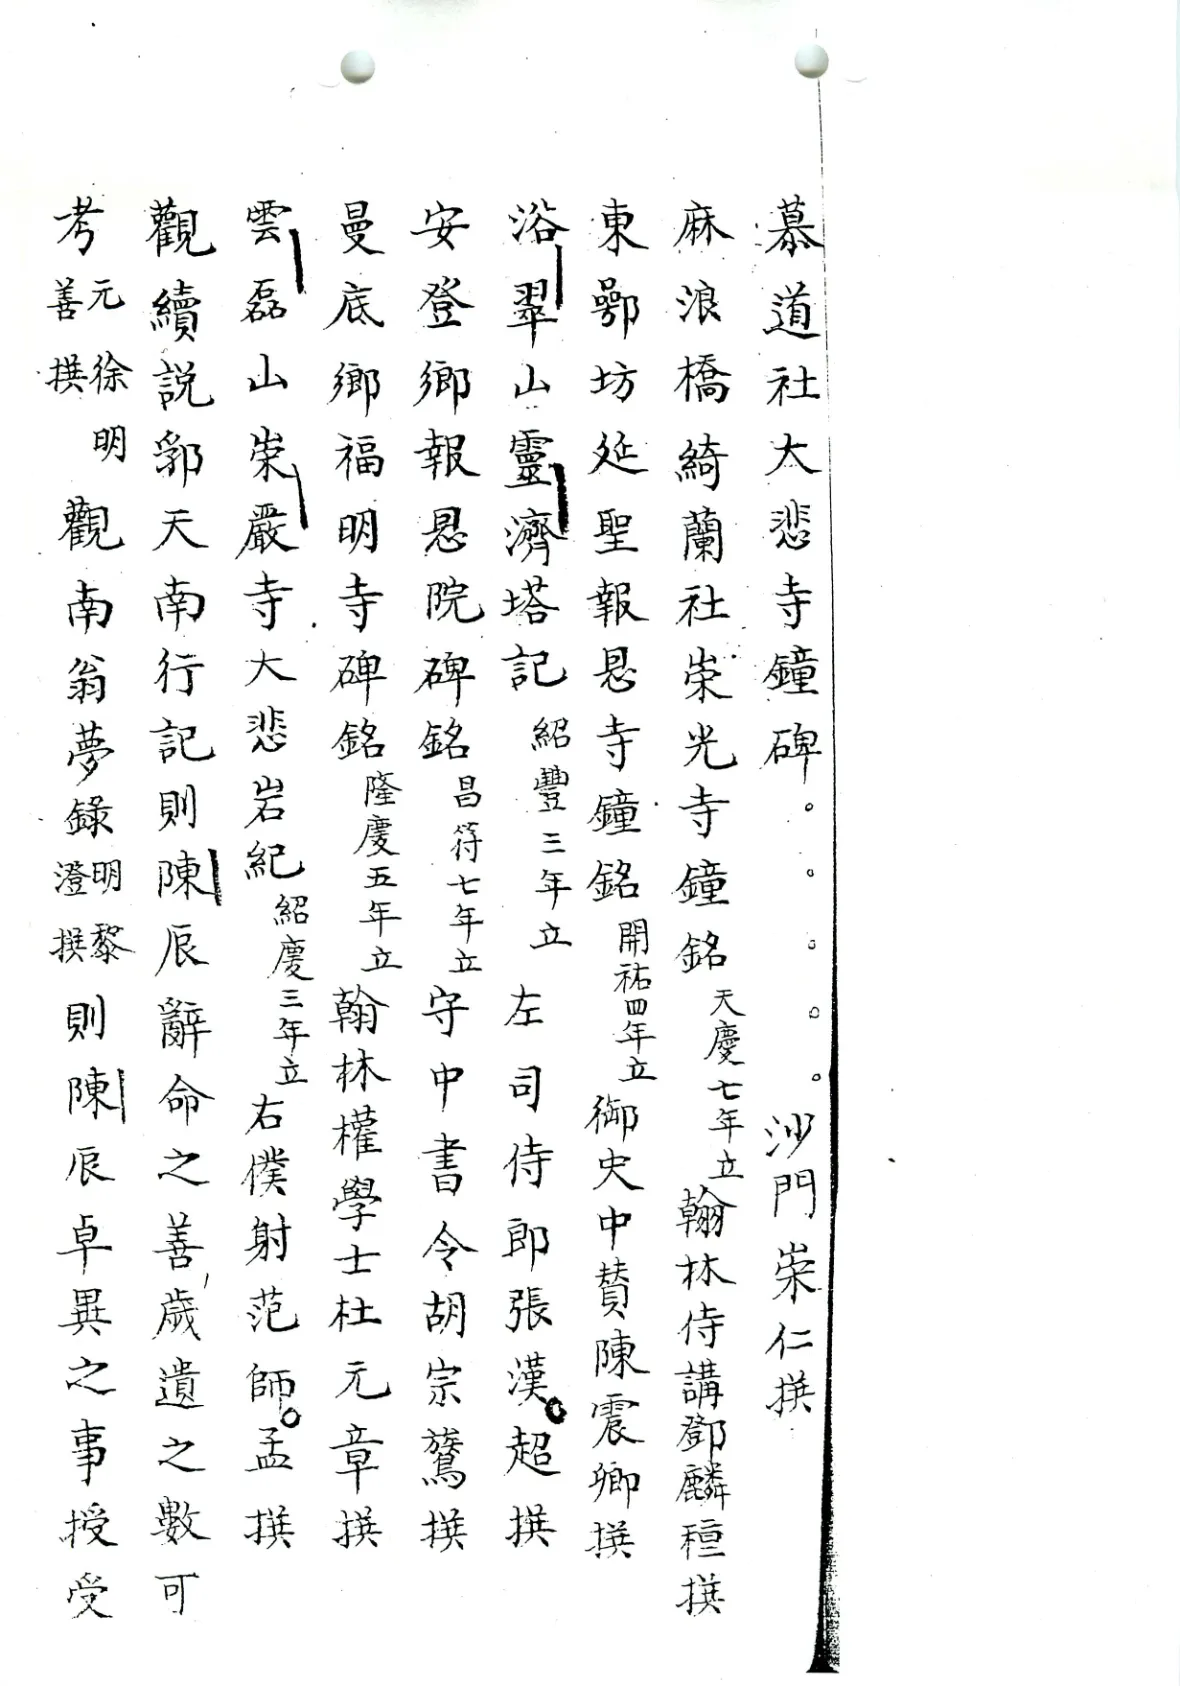 慕道社大悲寺鐘碑。。。。。沙門崇仁撰
麻浪橋綺蘭社崇光寺鐘銘天慶七年立翰林侍講鄧麟種撰
東鄂坊延聖報恩寺鐘銘開祐四年立御史中賛陳震卿撰
浴翠山靈濟塔記紹豐三年立左司侍郎張漢超撰
安登鄉報恩院碑銘昌符七年立守中書令胡宗鷟撰
曼底鄉福明寺碑銘隆慶五年立翰林權學士杜元章撰
雲磊山崇嚴寺大悲岩紀紹慶三年立右僕射范師孟撰
觀續説郛天南行記則陳辰辭命之善歲遺之數可
考元徐明善撰觀南翁夢錄明黎澄撰則陳辰卓異之事授受